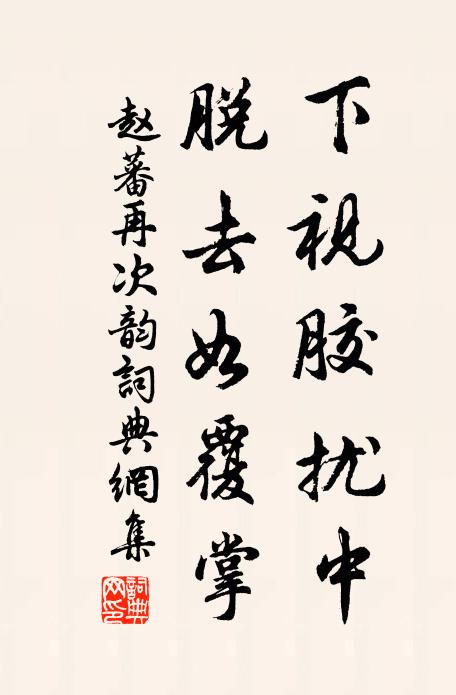 下视胶扰中
脱去如覆掌
赵蕃再次韵詞典網集
詞典网印